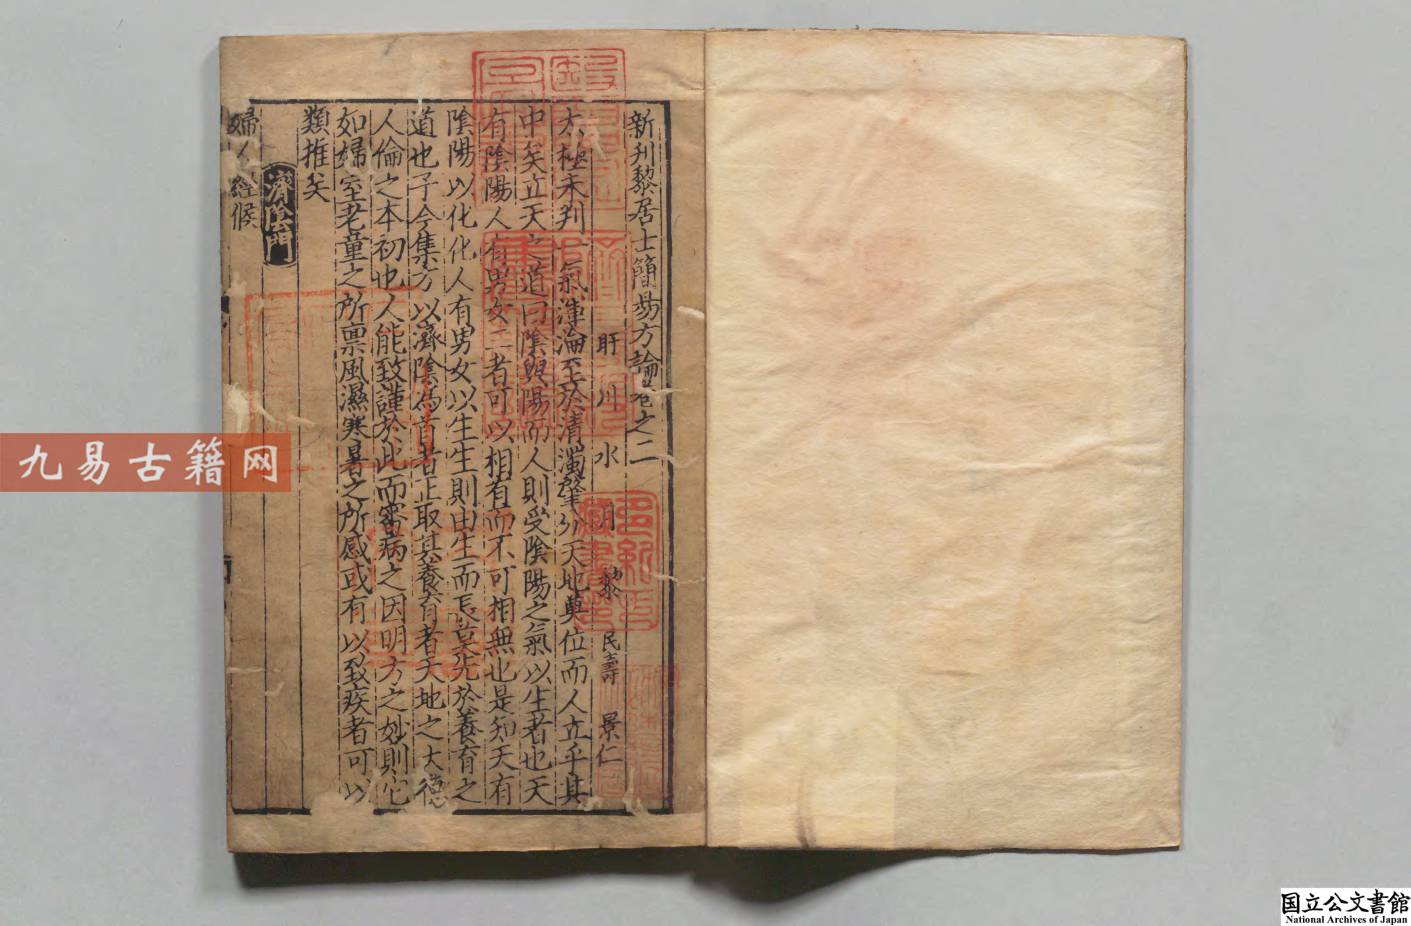 新刋黎居士簡易方論卷之二
盱川水月黎民壽景仁
太極未判一氣渾淪至於清濁肇分天地奠位而人立乎其
中矣立天之道曰陰與陽而人則受陰陽之氣以生者也天
有陰陽人有男女二者可以相有而不可相無也是知天有
陰陽以化化人有男女以生生則由生而長莫先於養育之
道也予今集方以濟陰爲首者正取其養育者天地之大德
人倫之本初也人能致謹於此而審病之因明方之妙則它
如婦室老童之所禀風濕寒暑之所感或有以致疾者可以
類推矣
濟陰門
婦人經候
九易古籍网
国立公文書館
National Archives of Japan